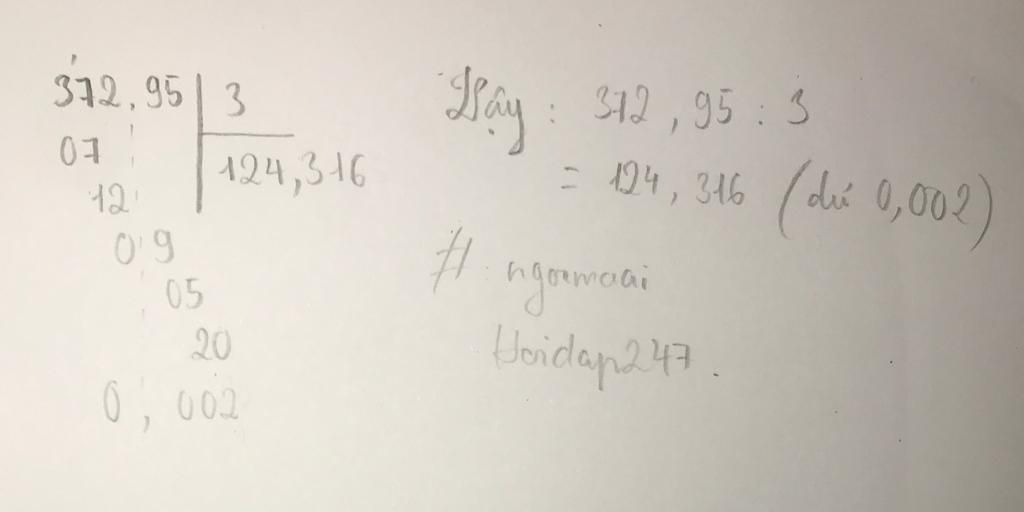 372,95 3
07 124,316
12
09
05
20
0,002
Vậy : 372,95 : 3
= 124,316 (dư 0,002)
# ngocmaai
Hoidap247.